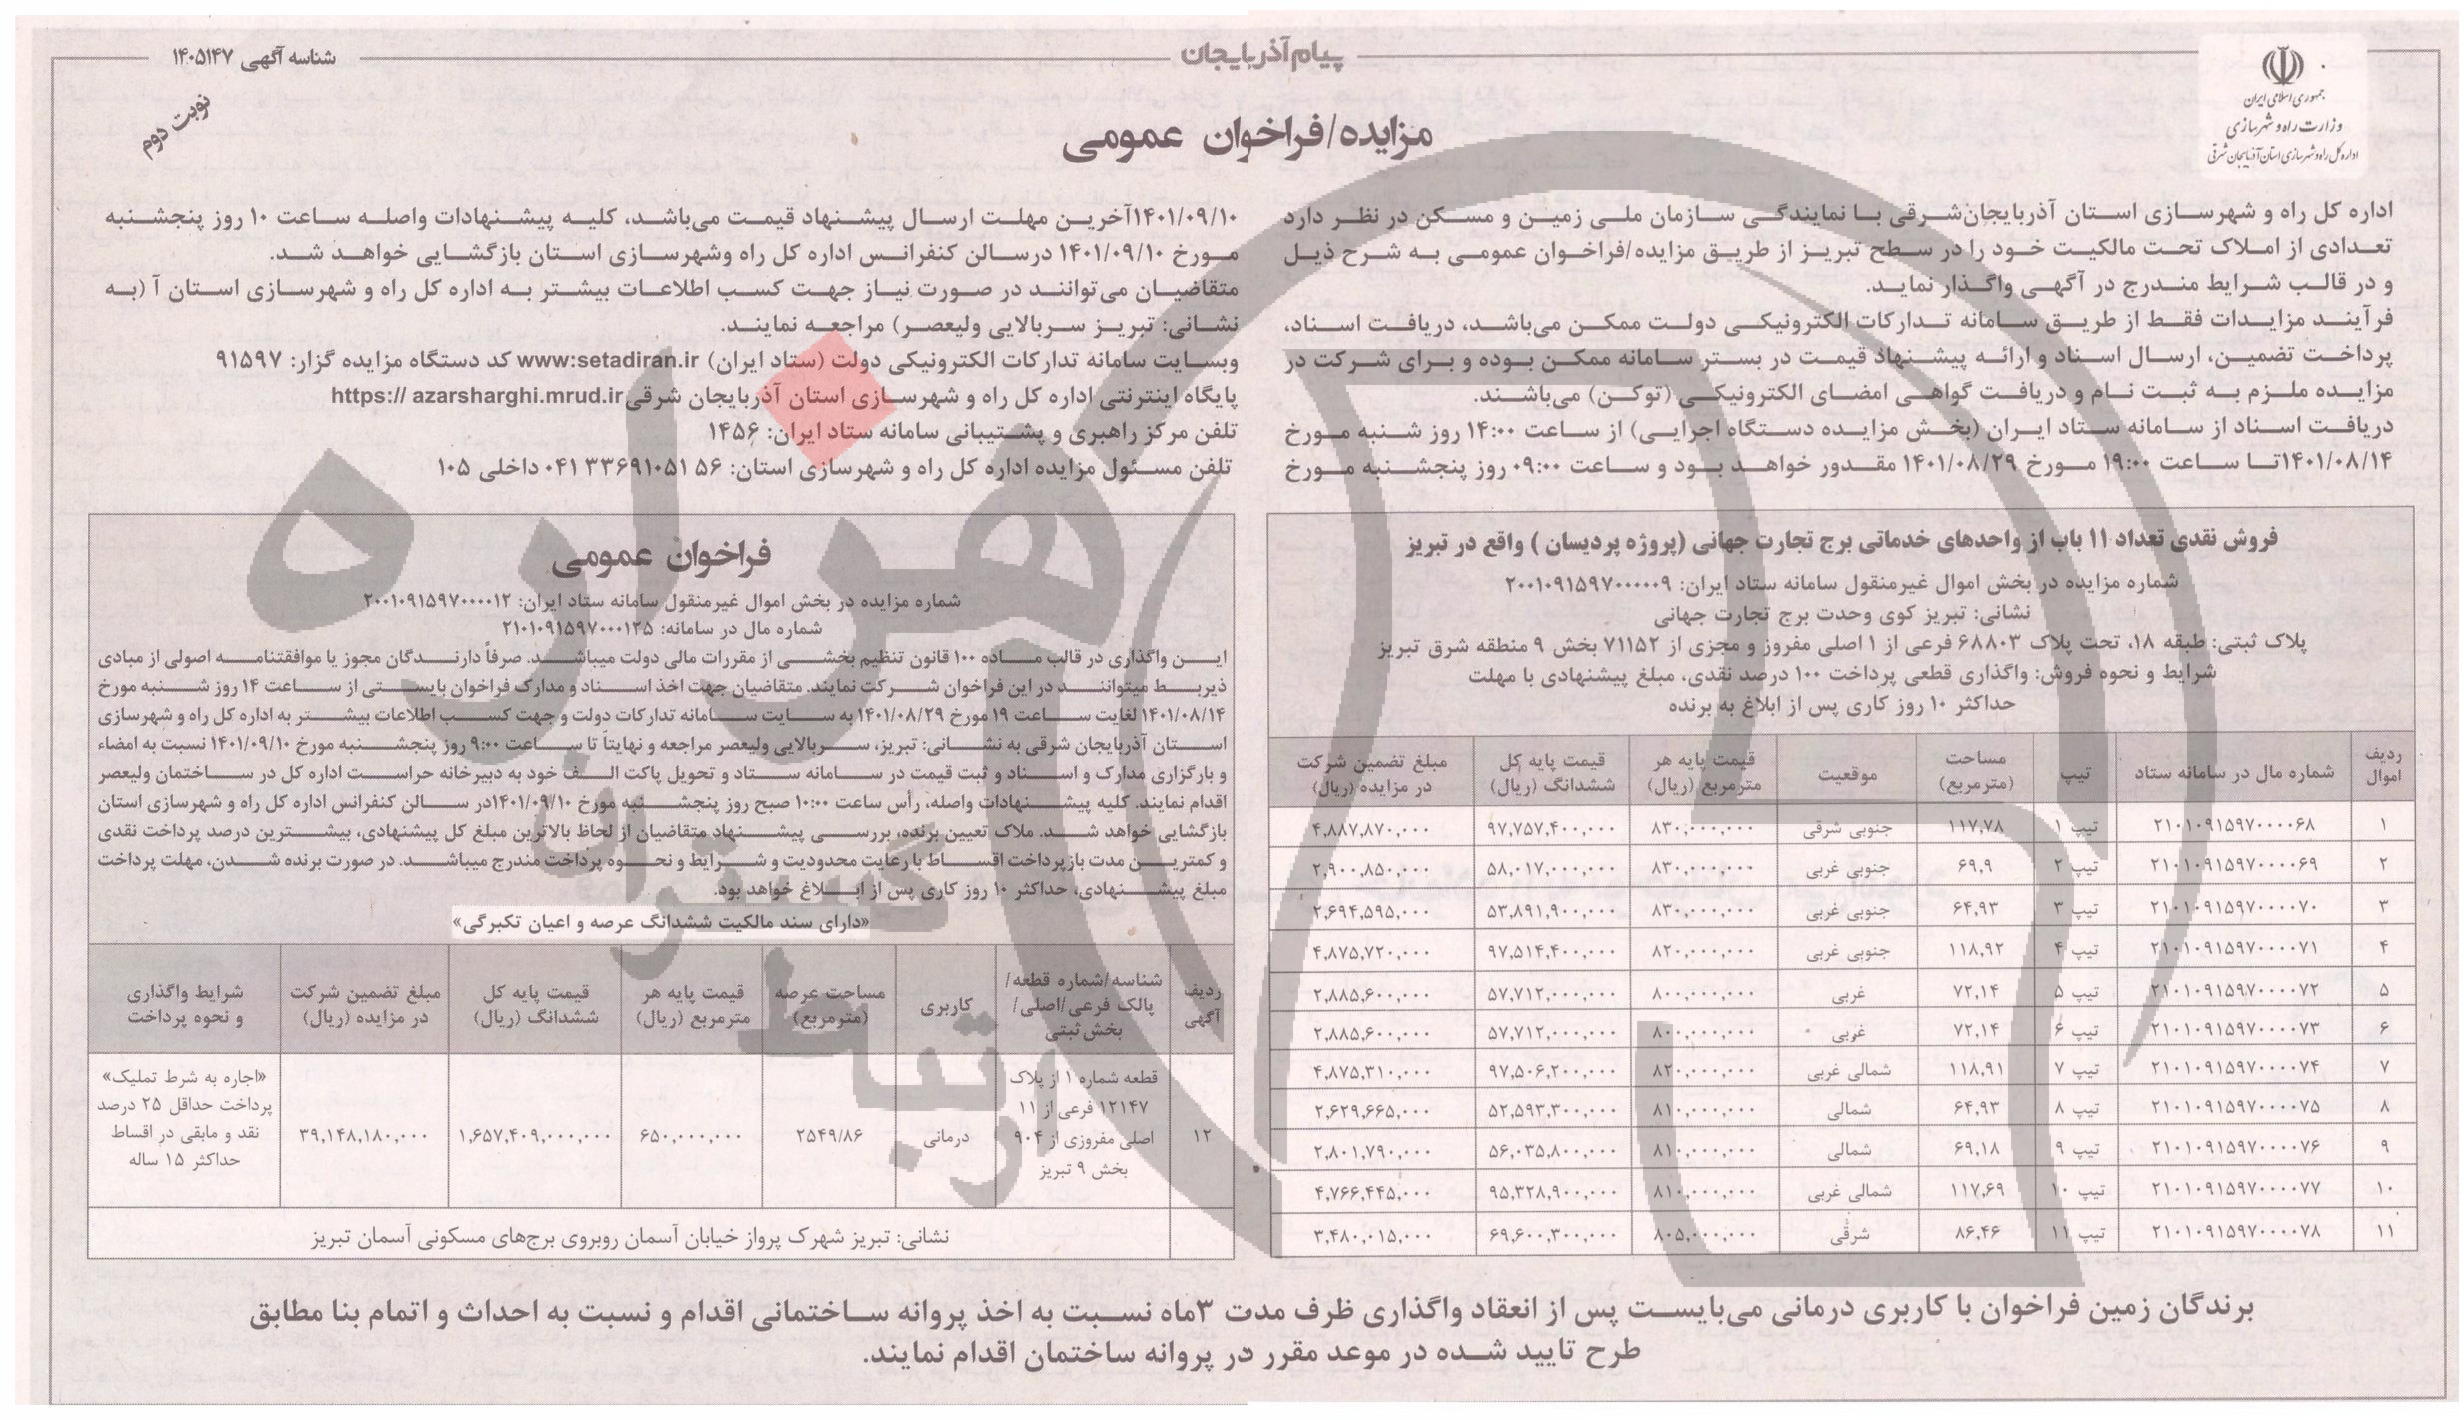 شناسه آگهی ۱۴۰۵۱۴۷
پیام آذربایجان
جمهوری اسلامی ایران
وزارت راه و شهرسازی
اداره کل راه و شهرسازی استان آذربایجان شرقی
نوبت دوم
مزایده/فراخوان عمومی
اداره کل راه و شهرسازی استان آذربایجان‌شرقی با نمایندگی سازمان ملی زمین و مسکن در نظر دارد
تعدادی از املاک تحت مالکیت خود را در سطح تبریز از طریق مزایده/فراخوان عمومی به شرح ذیل
و در قالب شرایط مندرج در آگهی واگذار نماید.
فرآیند مزایدات فقط از طریق سامانه تدارکات الکترونیکی دولت ممکن می‌باشد، دریافت اسناد،
پرداخت تضمین، ارسال اسناد و ارائه پیشنهاد قیمت در بستر سامانه ممکن بوده و برای شرکت در
مزایده ملزم به ثبت نام و دریافت گواهی امضای الکترونیکی (توکن) می‌باشند.
دریافت اسناد از سامانه ستاد ایران (بخش مزایده دستگاه اجرایی) از ساعت ۱۴:۰۰ روز شنبه مورخ
۱۴۰۱/۰۸/۱۴تا ساعت ۱۹:۰۰ مورخ ۱۴۰۱/۰۸/۲۹ مقدور خواهد بود و ساعت ۰۹:۰۰ روز پنجشنبه مورخ
۱۴۰۱/۰۹/۱۰آخرین مهلت ارسال پیشنهاد قیمت می‌باشد، کلیه پیشنهادات واصله ساعت ۱۰ روز پنجشنبه
مورخ ۱۴۰۱/۰۹/۱۰ درسالن کنفرانس اداره کل راه وشهرسازی استان بازگشایی خواهد شد.
متقاضیان می‌توانند در صورت نیاز جهت کسب اطلاعات بیشتر به اداره کل راه و شهرسازی استان آ (به
نشانی: تبریز سربالایی ولیعصر) مراجعه نمایند.
وبسایت سامانه تدارکات الکترونیکی دولت (ستاد ایران) www:setadiran.ir کد دستگاه مزایده گزار: ۹۱۵۹۷
پایگاه اینترنتی اداره کل راه و شهرسازی استان آذربایجان شرقیhttps:// azarsharghi.mrud.ir
تلفن مرکز راهبری و پشتیبانی سامانه ستاد ایران: ۱۴۵۶
تلفن مسئول مزایده اداره کل راه و شهرسازی استان: ۵۶ ۳۳۶۹۱۰۵۱ ۰۴۱ داخلی ۱۰۵
فروش نقدی تعداد ۱۱ باب از واحدهای خدماتی برج تجارت جهانی (پروژه پردیسان ) واقع در تبریز
شماره مزایده در بخش اموال غیرمنقول سامانه ستاد ایران: ۲۰۰۱۰۹۱۵۹۷۰۰۰۰۰۹
نشانی: تبریز کوی وحدت برج تجارت جهانی
پلاک ثبتی: طبقه ۱۸، تحت پلاک ۶۸۸۰۳ فرعی از ۱ اصلی مفروز و مجزی از ۷۱۱۵۲ بخش ۹ منطقه شرق تبریز
شرایط و نحوه فروش: واگذاری قطعی پرداخت ۱۰۰ درصد نقدی، مبلغ پیشنهادی با مهلت
حداکثر ۱۰ روز کاری پس از ابلاغ به برنده
ردیف اموال | شماره مال در سامانه ستاد | تیپ | مساحت (مترمربع) | موقعیت | قیمت پایه هر مترمربع (ریال) | قیمت پایه کل ششدانگ (ریال) | مبلغ تضمین شرکت در مزایده (ریال)
۱ | ۲۱۰۱۰۹۱۵۹۷۰۰۰۰۶۸ | تیپ ۱ | ۱۱۷,۷۸ | جنوبی شرقی | ۸۳۰,۰۰۰,۰۰۰ | ۹۷,۷۵۷,۴۰۰,۰۰۰ | ۴,۸۸۷,۸۷۰,۰۰۰
۲ | ۲۱۰۱۰۹۱۵۹۷۰۰۰۰۶۹ | تیپ ۲ | ۶۹,۹ | جنوبی غربی | ۸۳۰,۰۰۰,۰۰۰ | ۵۸,۰۱۷,۰۰۰,۰۰۰ | ۲,۹۰۰,۸۵۰,۰۰۰
۳ | ۲۱۰۱۰۹۱۵۹۷۰۰۰۰۷۰ | تیپ ۳ | ۶۴,۹۳ | جنوبی غربی | ۸۳۰,۰۰۰,۰۰۰ | ۵۳,۸۹۱,۹۰۰,۰۰۰ | ۲,۶۹۴,۵۹۵,۰۰۰
۴ | ۲۱۰۱۰۹۱۵۹۷۰۰۰۰۷۱ | تیپ ۴ | ۱۱۸,۹۲ | جنوبی غربی | ۸۲۰,۰۰۰,۰۰۰ | ۹۷,۵۱۴,۴۰۰,۰۰۰ | ۴,۸۷۵,۷۲۰,۰۰۰
۵ | ۲۱۰۱۰۹۱۵۹۷۰۰۰۰۷۲ | تیپ ۵ | ۷۲,۱۴ | غربی | ۸۰۰,۰۰۰,۰۰۰ | ۵۷,۷۱۲,۰۰۰,۰۰۰ | ۲,۸۸۵,۶۰۰,۰۰۰
۶ | ۲۱۰۱۰۹۱۵۹۷۰۰۰۰۷۳ | تیپ ۶ | ۷۲,۱۴ | غربی | ۸۰۰,۰۰۰,۰۰۰ | ۵۷,۷۱۲,۰۰۰,۰۰۰ | ۲,۸۸۵,۶۰۰,۰۰۰
۷ | ۲۱۰۱۰۹۱۵۹۷۰۰۰۰۷۴ | تیپ ۷ | ۱۱۸,۹۱ | شمالی غربی | ۸۲۰,۰۰۰,۰۰۰ | ۹۷,۵۰۶,۲۰۰,۰۰۰ | ۴,۸۷۵,۳۱۰,۰۰۰
۸ | ۲۱۰۱۰۹۱۵۹۷۰۰۰۰۷۵ | تیپ ۸ | ۶۴,۹۳ | شمالی | ۸۱۰,۰۰۰,۰۰۰ | ۵۲,۵۹۳,۳۰۰,۰۰۰ | ۲,۶۲۹,۶۶۵,۰۰۰
۹ | ۲۱۰۱۰۹۱۵۹۷۰۰۰۰۷۶ | تیپ ۹ | ۶۹,۱۸ | شمالی | ۸۱۰,۰۰۰,۰۰۰ | ۵۶,۰۳۵,۸۰۰,۰۰۰ | ۲,۸۰۱,۷۹۰,۰۰۰
۱۰ | ۲۱۰۱۰۹۱۵۹۷۰۰۰۰۷۷ | تیپ ۱۰ | ۱۱۷,۶۹ | شمالی غربی | ۸۱۰,۰۰۰,۰۰۰ | ۹۵,۳۲۸,۹۰۰,۰۰۰ | ۴,۷۶۶,۴۴۵,۰۰۰
۱۱ | ۲۱۰۱۰۹۱۵۹۷۰۰۰۰۷۸ | تیپ ۱۱ | ۸۶,۴۶ | شرقی | ۸۰۵,۰۰۰,۰۰۰ | ۶۹,۶۰۰,۳۰۰,۰۰۰ | ۳,۴۸۰,۰۱۵,۰۰۰
فراخوان عمومی
شماره مزایده در بخش اموال غیرمنقول سامانه ستاد ایران: ۲۰۰۱۰۹۱۵۹۷۰۰۰۰۱۲
شماره مال در سامانه: ۲۱۰۱۰۹۱۵۹۷۰۰۰۱۲۵
این واگذاری در قالب ماده ۱۰۰ قانون تنظیم بخشی از مقررات مالی دولت میباشد. صرفاً دارندگان مجوز یا موافقتنامه اصولی از مبادی
ذیربط میتوانند در این فراخوان شرکت نمایند. متقاضیان جهت اخذ اسناد و مدارک فراخوان بایستی از ساعت ۱۴ روز شنبه مورخ
۱۴۰۱/۰۸/۱۴ لغایت ساعت ۱۹ مورخ ۱۴۰۱/۰۸/۲۹ به سایت سامانه تدارکات دولت و جهت کسب اطلاعات بیشتر به اداره کل راه و شهرسازی
استان آذربایجان شرقی به نشانی: تبریز، سربالایی ولیعصر مراجعه و نهایتاً تا ساعت ۹:۰۰ روز پنجشنبه مورخ ۱۴۰۱/۰۹/۱۰ نسبت به امضاء
و بارگزاری مدارک و اسناد و ثبت قیمت در سامانه ستاد و تحویل پاکت الف خود به دبیرخانه حراست اداره کل در ساختمان ولیعصر
اقدام نمایند. کلیه پیشنهادات واصله، رأس ساعت ۱۰:۰۰ صبح روز پنجشنبه مورخ ۱۴۰۱/۰۹/۱۰در سالن کنفرانس اداره کل راه و شهرسازی استان
بازگشایی خواهد شد. ملاک تعیین برنده، بررسی پیشنهاد متقاضیان از لحاظ بالاترین مبلغ کل پیشنهادی، بیشترین درصد پرداخت نقدی
و کمترین مدت بازپرداخت اقساط با رعایت محدودیت و شرایط و نحوه پرداخت مندرج میباشد. در صورت برنده شدن، مهلت پرداخت
مبلغ پیشنهادی، حداکثر ۱۰ روز کاری پس از ابلاغ خواهد بود.
«دارای سند مالکیت ششدانگ عرصه و اعیان تکبرگی»
ردیف آگهی | شناسه/شماره قطعه/ پالک فرعی/اصلی/ بخش ثبتی | کاربری | مساحت عرصه (مترمربع) | قیمت پایه هر مترمربع (ریال) | قیمت پایه کل ششدانگ (ریال) | مبلغ تضمین شرکت در مزایده (ریال) | شرایط واگذاری و نحوه پرداخت
۱۲ | قطعه شماره ۱ از پلاک ۱۲۱۴۷ فرعی از ۱۱ اصلی مفروزی از ۹۰۴ بخش ۹ تبریز | درمانی | ۲۵۴۹/۸۶ | ۶۵۰,۰۰۰,۰۰۰ | ۱,۶۵۷,۴۰۹,۰۰۰,۰۰۰ | ۳۹,۱۴۸,۱۸۰,۰۰۰ | «اجاره به شرط تملیک» پرداخت حداقل ۲۵ درصد نقد و مابقی در اقساط حداکثر ۱۵ ساله
نشانی: تبریز شهرک پرواز خیابان آسمان روبروی برج‌های مسکونی آسمان تبریز
برندگان زمین فراخوان با کاربری درمانی می‌بایست پس از انعقاد واگذاری ظرف مدت ۳ماه نسبت به اخذ پروانه ساختمانی اقدام و نسبت به احداث و اتمام بنا مطابق
طرح تایید شده در موعد مقرر در پروانه ساختمان اقدام نمایند.